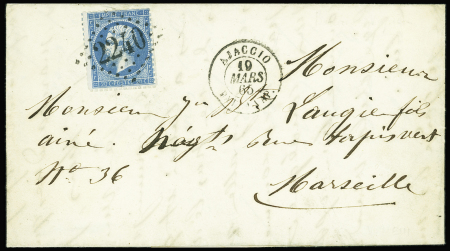 EMPIRE FRANC
2240
AJACCIO
19
MARS
65
Monsieur
Monsieur Laugier fils
ainé. Négt. Rue Tapis vert
No. 36
Marseille